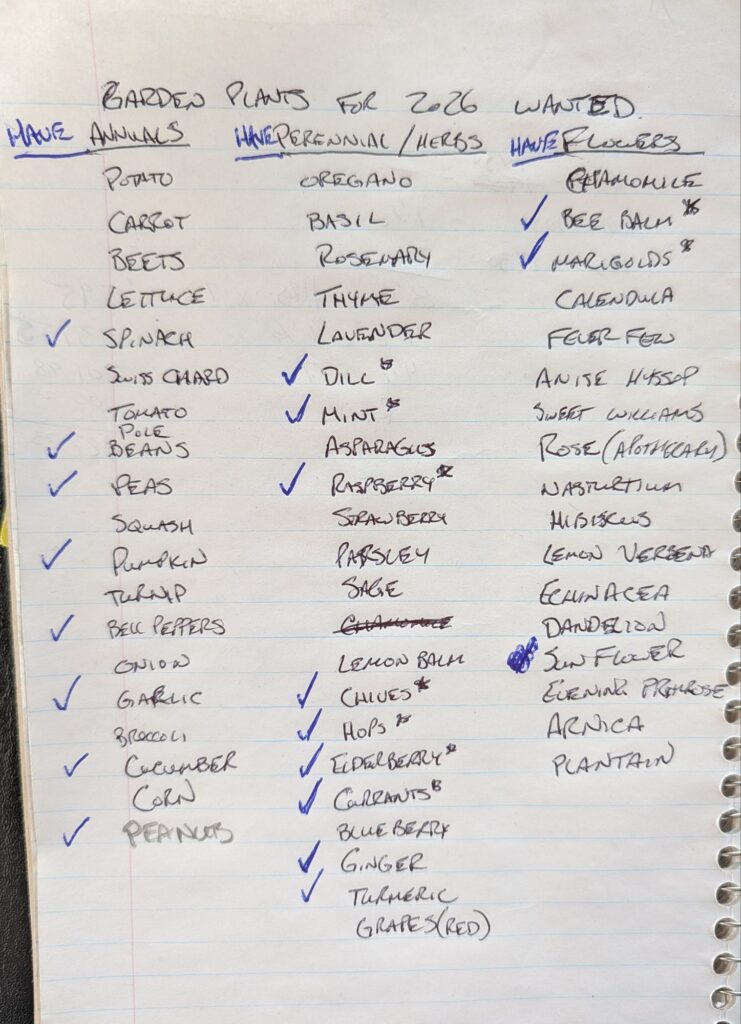 GARDEN PLANTS FOR 2026 WANTED.
HAVE ANNUALS
POTATO
CARROT
BEETS
LETTUCE
✓ SPINACH
SWISS CHARD
TOMATO
POLE
✓ BEANS
✓ PEAS
SQUASH
✓ PUMPKIN
TURNIP
✓ BELL PEPPERS
ONION
✓ GARLIC
BROCCOLI
✓ CUCUMBER
CORN
✓ PEANUTS
HAVE PERENNIAL/HERBS
OREGANO
BASIL
ROSEMARY
THYME
LAVENDER
✓ DILL*
✓ MINT*
ASPARAGUS
✓ RASPBERRY*
STRAWBERRY
PARSLEY
SAGE
CHAMOMILE
LEMON BALM
✓ CHIVES*
✓ HOPS*
✓ ELDERBERRY*
✓ CURRANTS*
BLUEBERRY
✓ GINGER
✓ TURMERIC
GRAPES(RED)
HAVE FLOWERS
CHAMOMILE
✓ BEE BALM*
✓ MARIGOLDS*
CALENDULA
FEVER FEW
ANISE HYSSOP
SWEET WILLIAMS
ROSE (APOTHECARY)
NASTURTIUM
HIBISCUS
LEMON VERBENA
ECHINACEA
DANDELION
SUNFLOWER
EVENING PRIMROSE
ARNICA
PLANTAIN